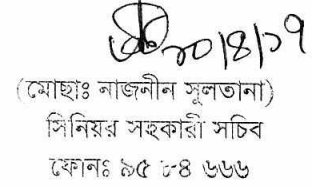 ২০/৪/১৭
(মোছাঃ নাজনীন সুলতানা)
সিনিয়র সহকারী সচিব
ফোনঃ ৯৫ ৮৪ ৬৬৬